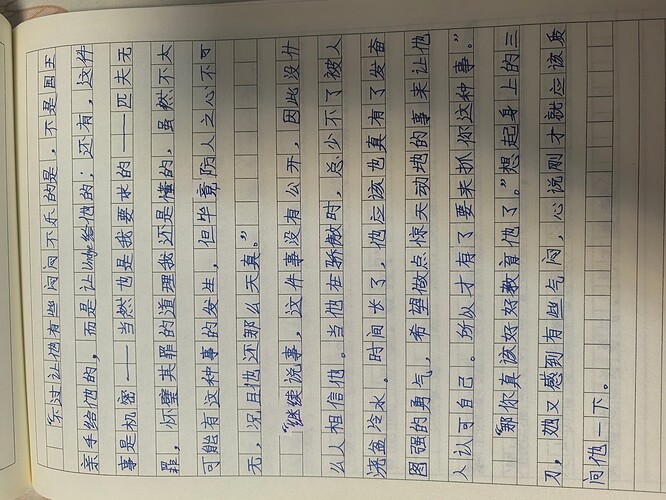 “不过让他有些闷闷不乐的是，不是国王
亲手给他的，而是让给他的；还有，这件
事是机密——当然也是我要求的——匹夫无
罪，怀璧其罪的道理我还是懂的，虽然不太
可能有这种事的发生，但毕竟防人之心不可
无，况且他还那么天真。”
“继续说事，这件事没有公开，因此没什
么人相信他。当他在骄傲时，总少不了被人
浇盆冷水。时间长了，他应该也真有了发奋
图强的勇气，希望做点惊天动地的事来让他
人认可自己。所以才有了要来抓你这种事。”
“那你真该好好教育他了。”想起身上的三
刀，她又感到有些气闷，心说刚才就应该质
问他一下。